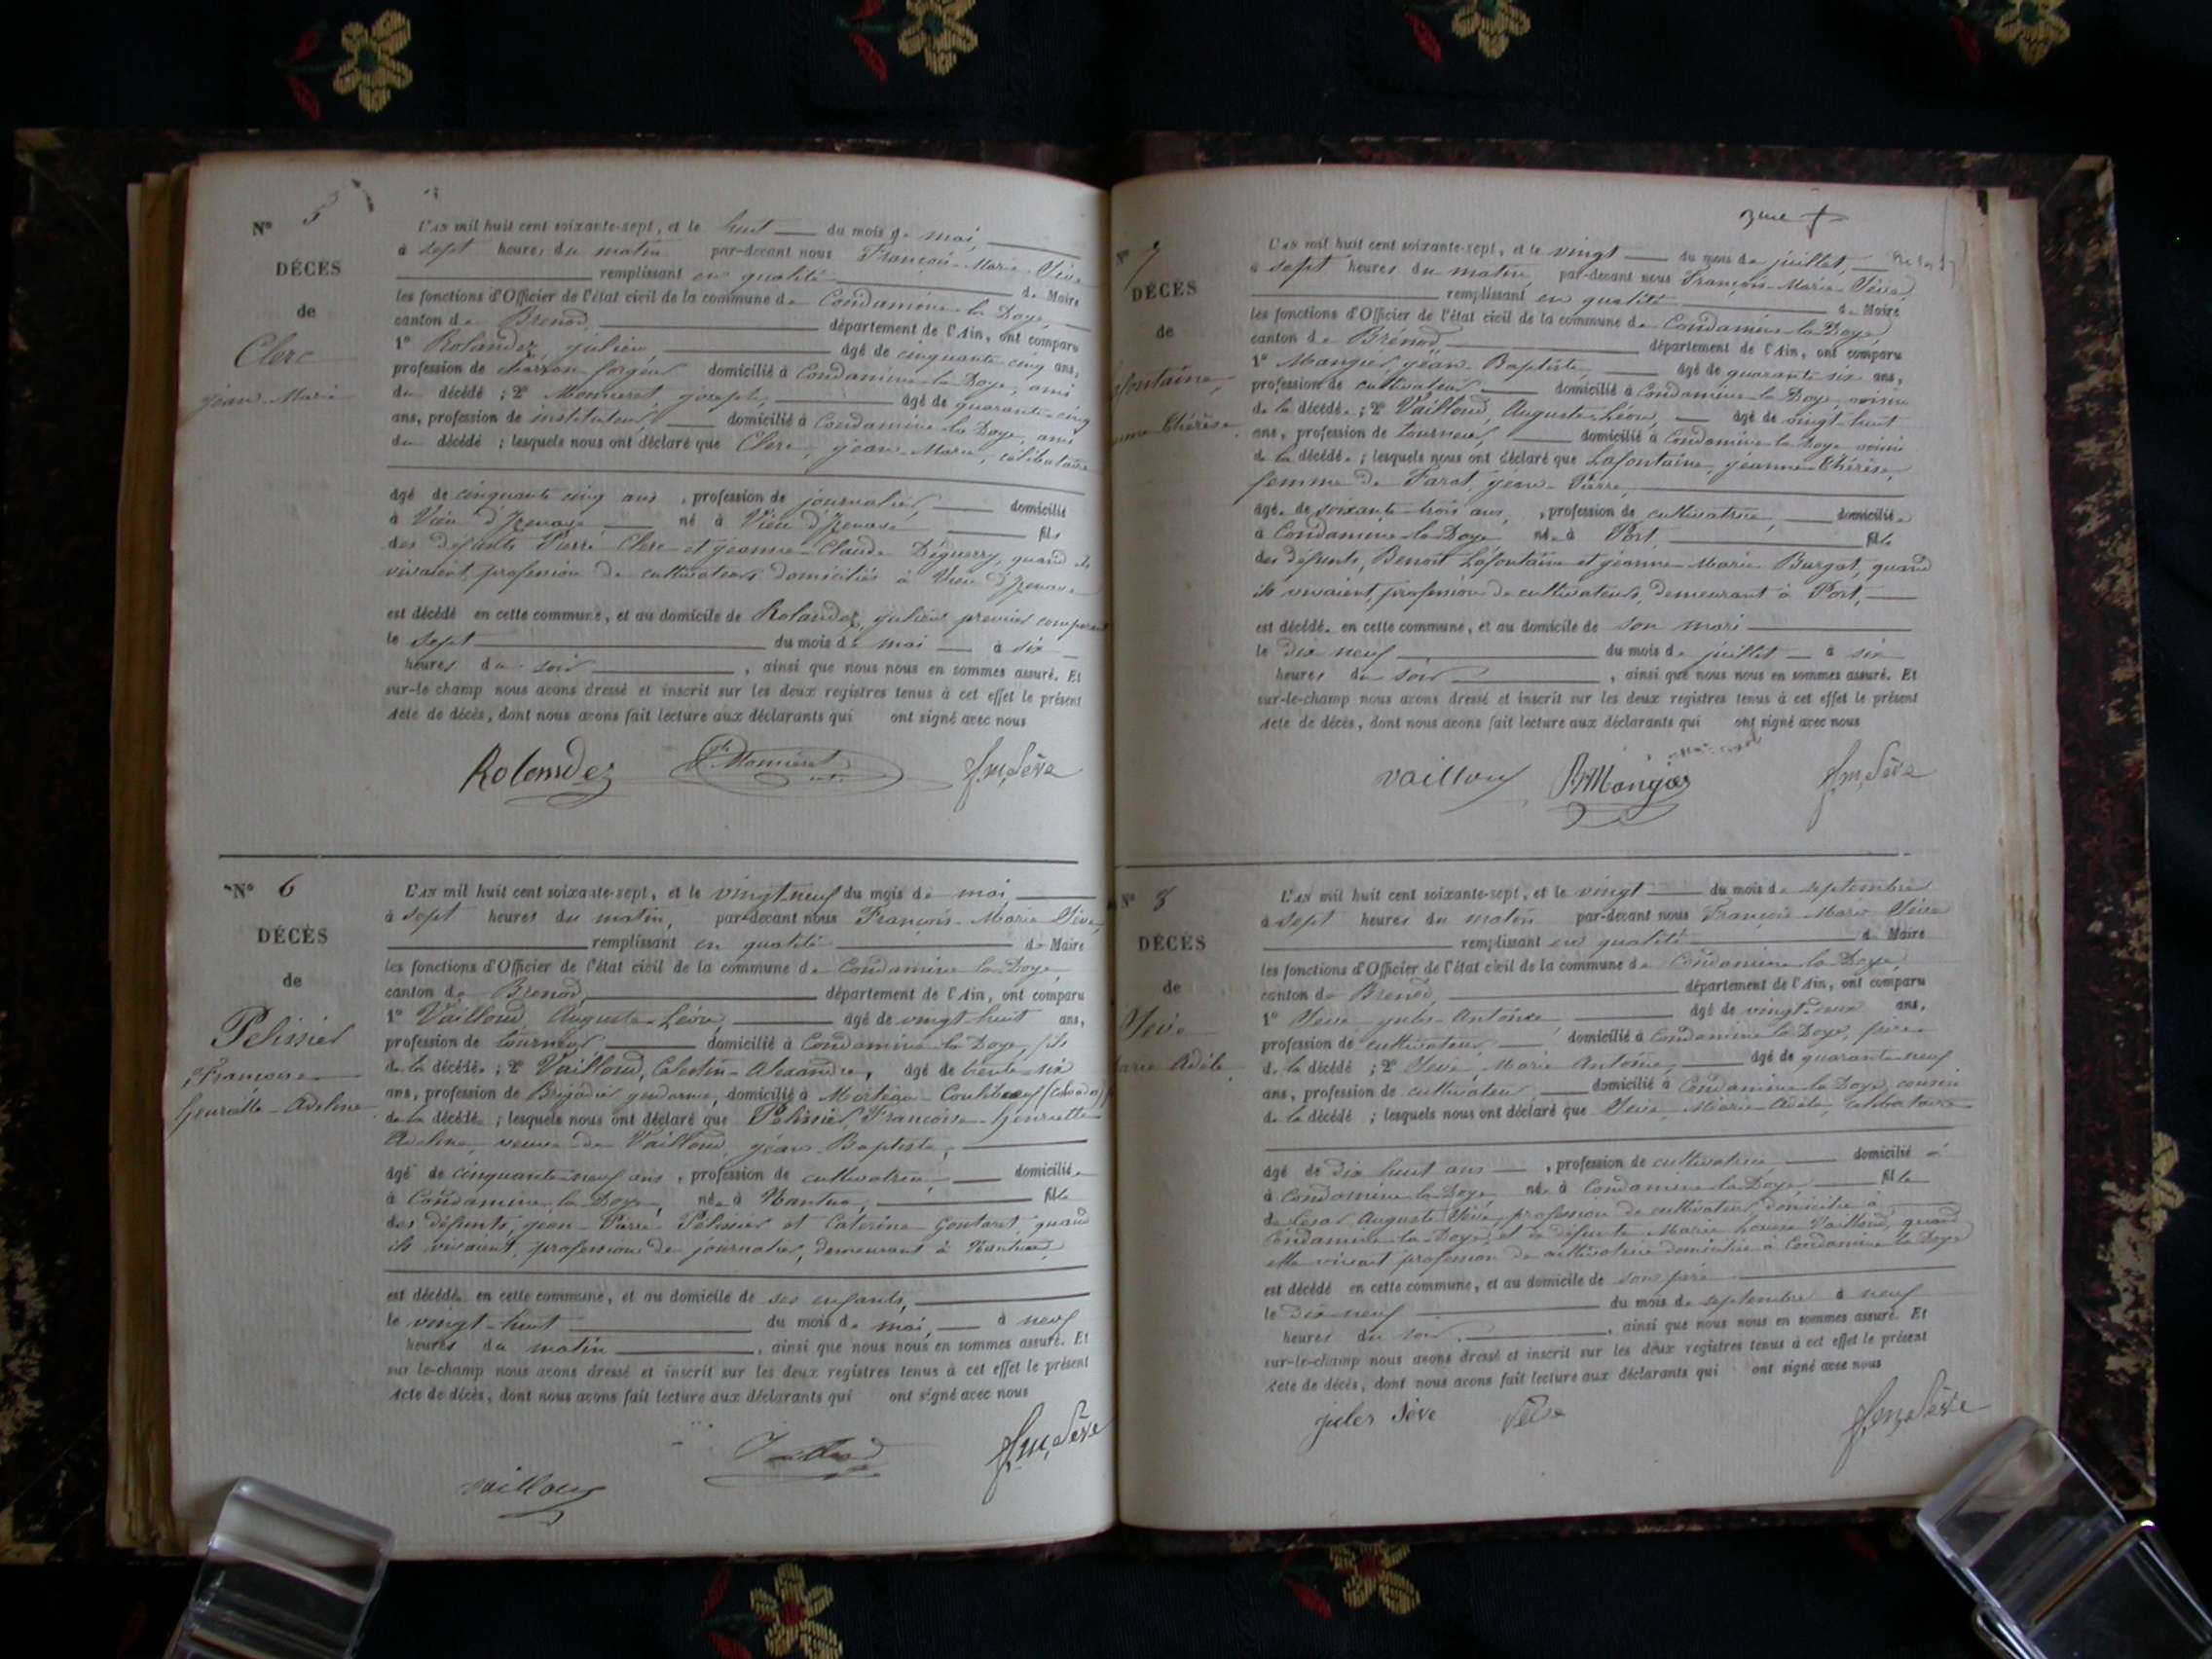 N° 5
DÉCÈS
de
Clerc
jean-Marie
L'AN mil huit cent soixante-sept, et le huit du mois de mai,
à sept heures du matin par-devant nous François-Marie Sève
remplissant en qualité de Maire
les fonctions d'Officier de l'état civil de la commune de Condamine la Doye,
canton de Brenod, département de l'Ain, ont comparu
1° Rolandez, julien, âgé de cinquante cinq ans,
profession de charron-forgeur domicilié à Condamine-la-Doye, ami
du décédé ; 2° Monneret, joseph, âgé de quarante-cinq
ans, profession de instituteur, domicilié à Condamine-la-Doye, ami
du décédé ; lesquels nous ont déclaré que Clerc, jean-Marie, célibataire
âgé de cinquante cinq ans, profession de journalier, domicilié
à Vieu d'Izenave né à Vieu d'Izenave fils
des défunts Pierre Clerc et jeanne-Claude Déguerry, quand ils
vivaient, profession de cultivateurs domiciliés à Vieu d'Izenave
est décédé en cette commune, et au domicile de Rolandez, julien premier comparant
le sept du mois de mai à six
heures du soir, ainsi que nous nous en sommes assuré. Et
sur-le-champ nous avons dressé et inscrit sur les deux registres tenus à cet effet le présent
acte de décès, dont nous avons fait lecture aux déclarants qui ont signé avec nous
Rolandez Monneret f. m. Sève
N° 6
DÉCÈS
de
Pelissier
Françoise
henriette-Adeline
L'AN mil huit cent soixante-sept, et le vingt neuf du mois de mai,
à sept heures du matin, par-devant nous François-Marie Sève,
remplissant en qualité de Maire
les fonctions d'Officier de l'état civil de la commune de Condamine la Doye,
canton de Brenod, département de l'Ain, ont comparu
1° Vailloud Auguste-Léon, âgé de vingt-huit ans,
profession de tourneur domicilié à Condamine la Doye, fils
de la décédée ; 2° Vailloud, Celestin-Alexandre, âgé de trente-six
ans, profession de Brigadier gendarme, domicilié à Morteaux-Coulibœuf (Calvados)
de la décédée ; lesquels nous ont déclaré que Pelissier, Françoise-henriette
Adeline, veuve de Vailloud, jean Baptiste,
âgé de cinquante-neuf ans, profession de cultivatrice, domiciliée
à Condamine la Doye, née à Nantua, fille
des défunts, jean-Pierre Pelissier et Caterine Goutaret quand
ils vivaient, profession de journalier, demeurant à Nantua,
est décédée en cette commune, et au domicile de ses enfants,
le vingt-huit du mois de mai, à neuf
heures du matin, ainsi que nous nous en sommes assuré. Et
sur le-champ nous avons dressé et inscrit sur les deux registres tenus à cet effet le présent
acte de décès, dont nous avons fait lecture aux déclarants qui ont signé avec nous
vailloud f. m. Sève
3me +
N° 7
DÉCÈS
de
fontaine,
Thérèse
L'AN mil huit cent soixante-sept, et le vingt du mois de juillet,
à sept heures du matin, par-devant nous François-Marie Sève,
remplissant en qualité de Maire
les fonctions d'Officier de l'état civil de la commune de Condamine-la-Doye,
canton de Brénod département de l'Ain, ont comparu
1° Mangier, jean-Baptiste, âgé de quarante six ans,
profession de cultivateur domicilié à Condamine-la-Doye, voisin
de la décédée ; 2° Vailloud, Auguste-Léon, âgé de vingt-huit
ans, profession de tourneur, domicilié à Condamine-la-Doye voisin
de la décédée ; lesquels nous ont déclaré que Lafontaine, jeanne-Thérèse,
femme de Farat, jean-Pierre,
âgée de soixante-trois ans, profession de cultivatrice, domiciliée
à Condamine-la-Doye née à Port, fille
des défunts, Benoît Lafontaine et jeanne-Marie Burgat, quand
ils vivaient, profession de cultivateurs, demeurant à Port,
est décédée en cette commune, et au domicile de son mari
le dix neuf du mois de juillet à six
heures du soir, ainsi que nous nous en sommes assuré. Et
sur-le-champ nous avons dressé et inscrit sur les deux registres tenus à cet effet le présent
acte de décès, dont nous avons fait lecture aux déclarants qui ont signé avec nous
vailloud Mangier f. m. Sève
N° 8
DÉCÈS
de
Sève
Marie Adèle
L'AN mil huit cent soixante-sept, et le vingt du mois de septembre
à sept heures du matin par-devant nous François Marie Sève
remplissant en qualité de Maire
les fonctions d'Officier de l'état civil de la commune de Condamine la Doye,
canton de Brenod, département de l'Ain, ont comparu
1° Sève jules-Antoine, âgé de vingt-deux ans,
profession de cultivateur, domicilié à Condamine la Doye, frère
de la décédé ; 2° Sève, Marie Antoine, âgé de quarante-neuf
ans, profession de cultivateur domicilié à Condamine la Doye, cousin
de la décédé ; lesquels nous ont déclaré que Sève, Marie-Adèle, célibataire
âgé de dix huit ans, profession de cultivatrice, domicilié à
à Condamine-la-Doye née à Condamine-la-Doye fille
de César Auguste Sève, profession de cultivateur, domicilié à
Condamine-la-Doye, et de défunte Marie Louise Vailloud, quand
elle vivait profession de cultivatrice domiciliée à Condamine la Doye
est décédé en cette commune, et au domicile de son père
le dix-neuf du mois de septembre à neuf
heures du soir, ainsi que nous nous en sommes assuré. Et
sur-le-champ nous avons dressé et inscrit sur les deux registres tenus à cet effet le présent
acte de décès, dont nous avons fait lecture aux déclarants qui ont signé avec nous
jules Sève Sève f. m. Sève